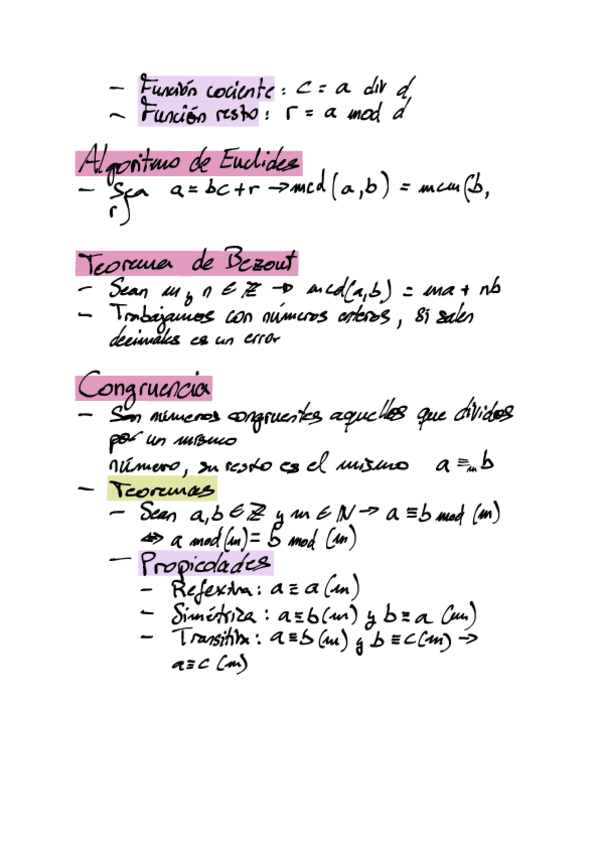 – Función cociente: c = a div d
– Función resto: r = a mod d
Algoritmo de Euclides
– Sea a = bc + r → mcd(a,b) = mcm(b,
r)
Teorema de Bezout
– Sean m y n ∈ ℤ → mcd(a,b) = ma + nb
– Trabajamos con números enteros, si salen
decimales es un error
Congruencia
– Son números congruentes aquellos que dividos
por un mismo
número, su resto es el mismo a ≡ₘ b
– Teoremas
– Sean a,b ∈ ℤ y m ∈ ℕ → a ≡ b mod (m)
⇔ a mod (m) = b mod (m)
– Propiedades
– Refexiva: a ≡ a (m)
– Simétriza: a ≡ b (m) y b ≡ a (m)
– Transitiva: a ≡ b (m) y b ≡ c (m) →
a ≡ c (m)